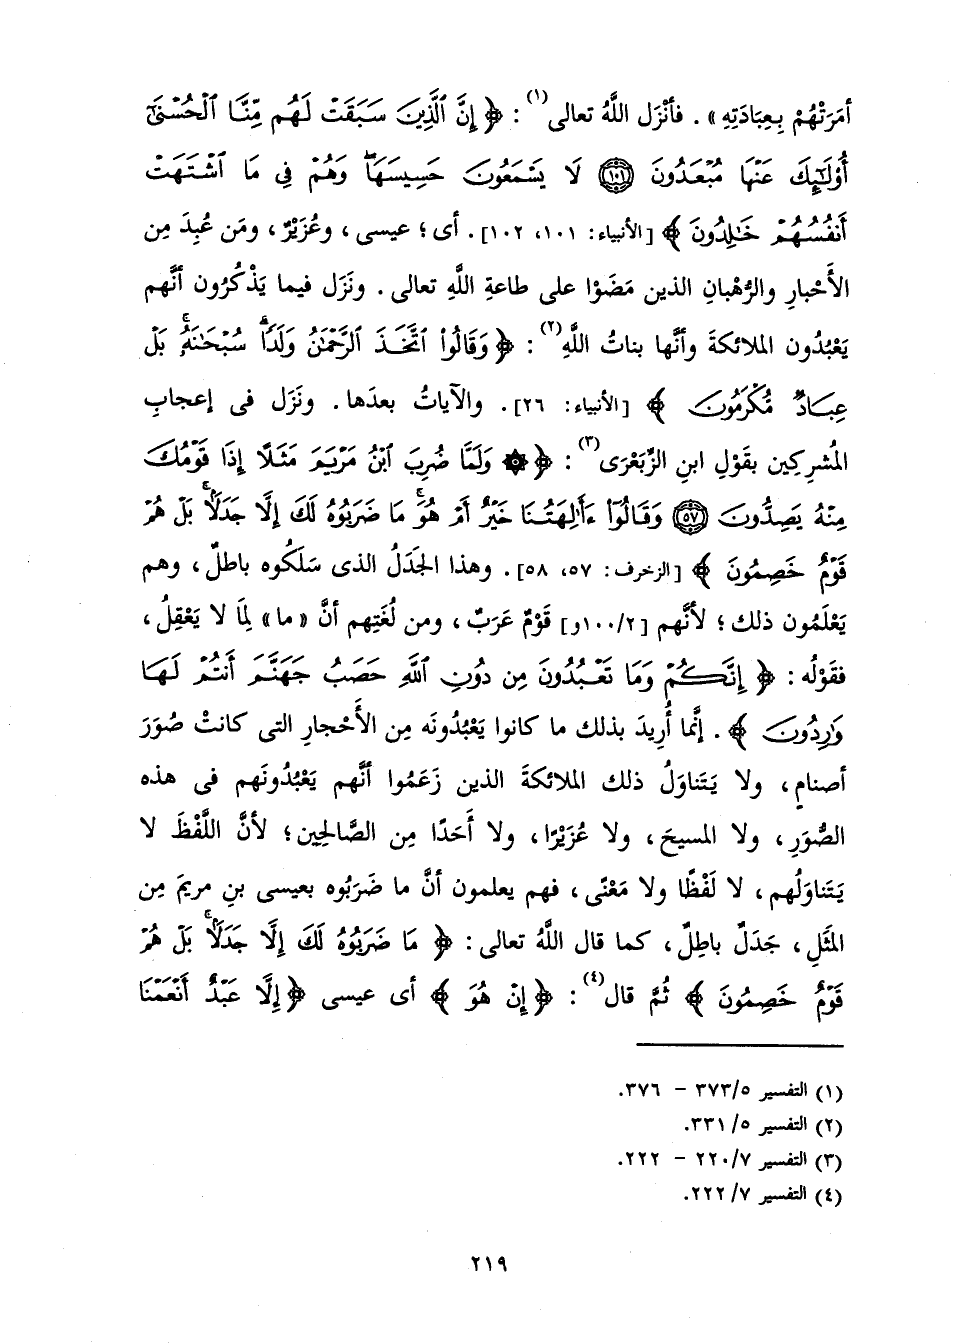 أمَرَتْهُمْ بِعِبَادَتِهِ» . فأنْزَل اللَّهُ تعالى(١) : ﴿ إِنَّ ٱلَّذِينَ سَبَقَتْ لَهُم مِّنَّا ٱلْحُسْنَىٰٓ
أُو۟لَٰٓئِكَ عَنْهَا مُبْعَدُونَ ﴿١٠١﴾ لَا يَسْمَعُونَ حَسِيسَهَا ۖ وَهُمْ فِى مَا ٱشْتَهَتْ
أَنفُسُهُمْ خَٰلِدُونَ ﴾ [الأنبياء: ١٠١، ١٠٢]. أى؛ عيسى، وعُزَيْرٌ، ومَن عُبِدَ مِن
الأَحْبارِ والرُّهْبانِ الذين مَضَوْا على طاعةِ اللَّهِ تعالى. ونَزَل فيما يَذْكُرُون أنَّهم
يَعْبُدُون الملائكةَ وأنَّها بناتُ اللَّهِ(٢) : ﴿ وَقَالُوا۟ ٱتَّخَذَ ٱلرَّحْمَٰنُ وَلَدًا ۗ سُبْحَٰنَهُۥ ۚ بَلْ
عِبَادٌ مُّكْرَمُونَ ﴾ [الأنبياء: ٢٦]. والآياتُ بعدَها. ونَزَل فى إعجابِ
المُشرِكِين بقَوْلِ ابنِ الزِّبَعْرَى(٣) : ﴿ ۞ وَلَمَّا ضُرِبَ ٱبْنُ مَرْيَمَ مَثَلًا إِذَا قَوْمُكَ
مِنْهُ يَصِدُّونَ ﴿٥٧﴾ وَقَالُوٓا۟ ءَأَٰلِهَتُنَا خَيْرٌ أَمْ هُوَ ۚ مَا ضَرَبُوهُ لَكَ إِلَّا جَدَلًۢا ۚ بَلْ هُمْ
قَوْمٌ خَصِمُونَ ﴾ [الزخرف: ٥٧، ٥٨]. وهذا الجَدَلُ الذى سَلَكُوه باطلٌ، وهم
يَعْلَمُون ذلك؛ لأنَّهم [٢/١٠٠و] قَوْمٌ عَرَبٌ، ومن لُغَتِهم أنَّ «ما» لِمَا لا يَعْقِلُ،
فقَوْلُه: ﴿ إِنَّكُمْ وَمَا تَعْبُدُونَ مِن دُونِ ٱللَّهِ حَصَبُ جَهَنَّمَ أَنتُمْ لَهَا
وَٰرِدُونَ ﴾ . إنَّما أُرِيدَ بذلك ما كانوا يَعْبُدُونَه مِن الأَحْجارِ التى كانتْ صُوَرَ
أصنامٍ، ولا يَتَناوَلُ ذلك الملائكةَ الذين زَعَمُوا أنَّهم يَعْبُدُونَهم فى هذه
الصُّوَرِ، ولا المسيحَ، ولا عُزَيْرًا، ولا أَحَدًا مِن الصَّالحِين؛ لأنَّ اللَّفْظَ لا
يَتَناوَلُهم، لا لَفْظًا ولا مَعْنًى، فهم يعلمون أنَّ ما ضَرَبُوه بعيسى بنِ مريمَ مِن
المثَلِ، جَدَلٌ باطلٌ، كما قال اللَّهُ تعالى: ﴿ مَا ضَرَبُوهُ لَكَ إِلَّا جَدَلًۢا ۚ بَلْ هُمْ
قَوْمٌ خَصِمُونَ ﴾ ثُمَّ قال(٤) : ﴿ إِنْ هُوَ ﴾ أى عيسى ﴿ إِلَّا عَبْدٌ أَنْعَمْنَا
(١) التفسير ٣٧٣/٥ - ٣٧٦.
(٢) التفسير ٣٣١/٥.
(٣) التفسير ٢٢٠/٧ - ٢٢٢.
(٤) التفسير ٢٢٢/٧.
٢١٩